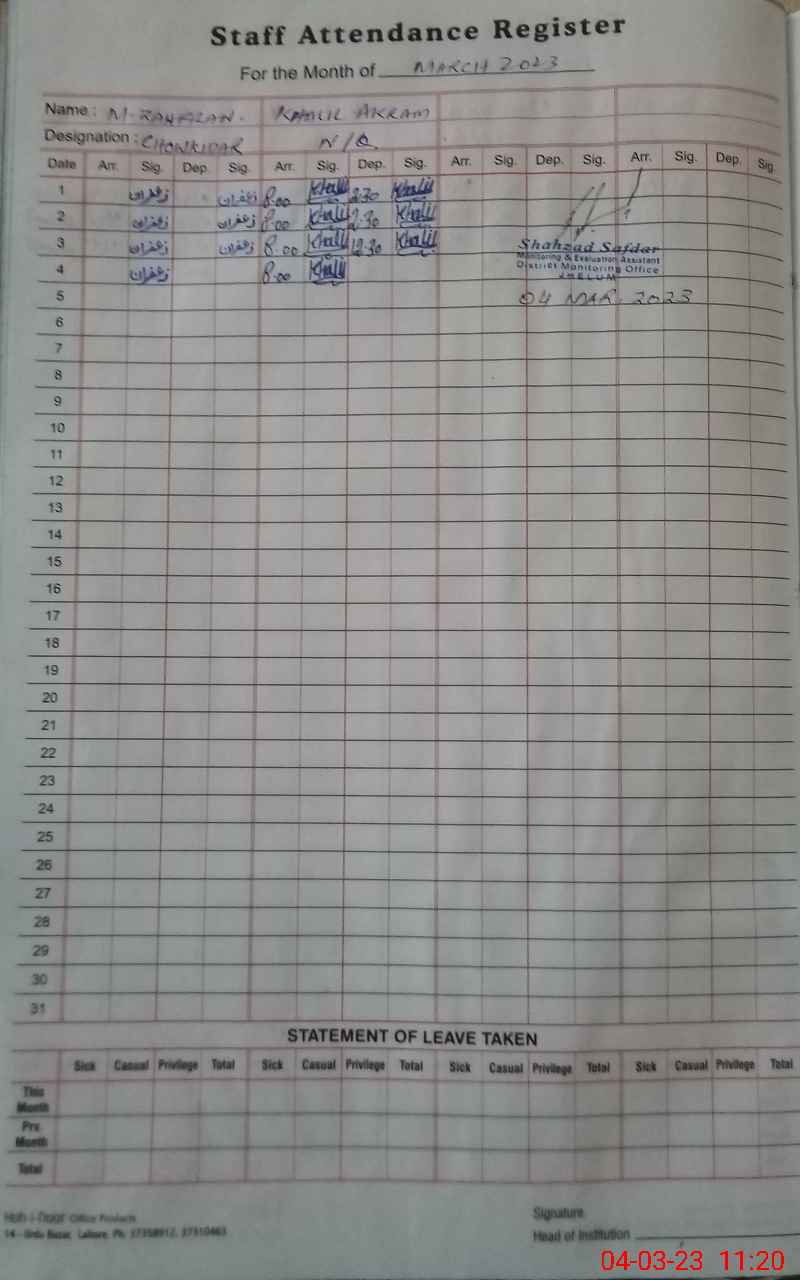 Staff Attendance Register
For the Month of MARCH 2023
Name : M. ZAHFRAN. KHALIL AKRAM
Designation : CHONKIDAR N/Q
Date Arr. Sig. Dep. Sig. Arr. Sig. Dep. Sig. Arr. Sig. Dep. Sig. Arr. Sig. Dep. Sig.
1 زعفران زعفران 8.00 Khalil 2.30 Khalil
2 زعفران زعفران 8.00 Khalil 2.30 Khalil
3 زعفران زعفران 8.00 Khalil 12.30 Khalil
Shahzad Safdar
Monitoring & Evaluation Assistant
District Monitoring Office
JHELUM
4 زعفران 8.00 Khalil
5 04 MAR. 2023
6
7
8
9
10
11
12
13
14
15
16
17
18
19
20
21
22
23
24
25
26
27
28
29
30
31
STATEMENT OF LEAVE TAKEN
Sick Casual Privilege Total Sick Casual Privilege Total Sick Casual Privilege Total Sick Casual Privilege Total
This Month
Prs Month
Total
Office Products
14 - Urdu Bazar, Lahore. Ph: 37358912, 37310463
Signature
Head of Institution
04-03-23 11:20